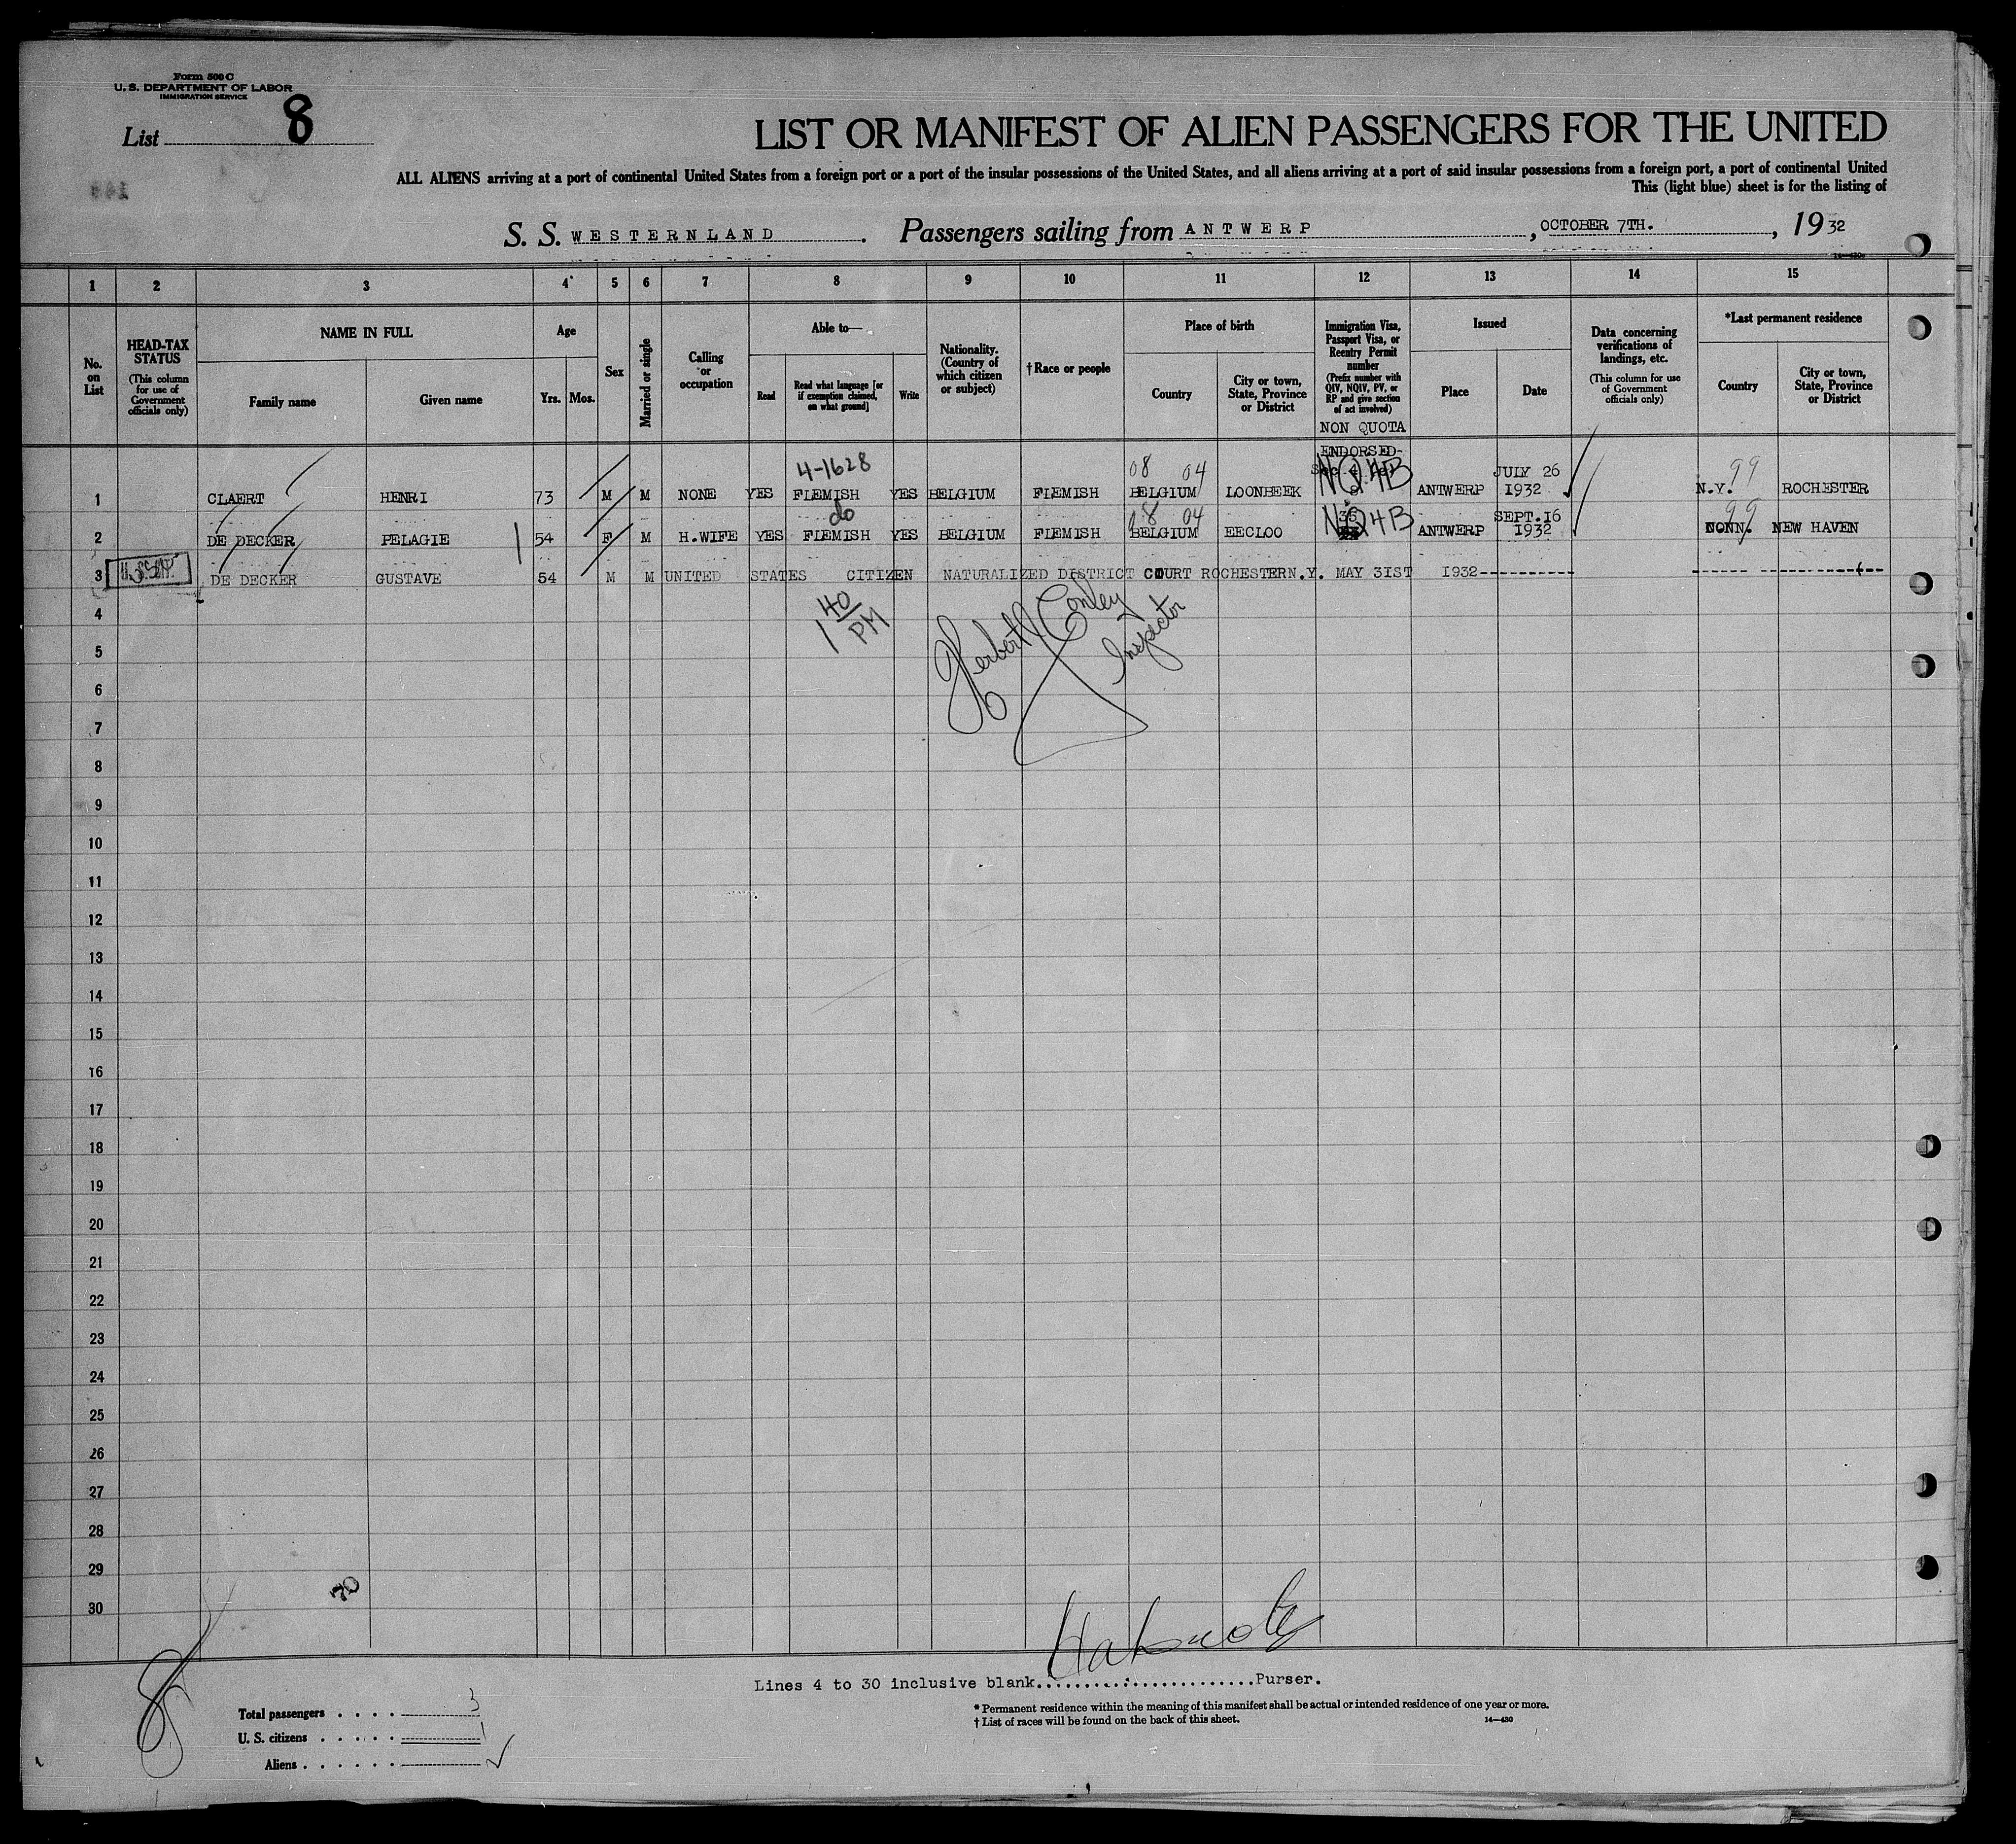 Form 500 C
U. S. DEPARTMENT OF LABOR
IMMIGRATION SERVICE
List 8
LIST OR MANIFEST OF ALIEN PASSENGERS FOR THE UNITED
ALL ALIENS arriving at a port of continental United States from a foreign port or a port of the insular possessions of the United States, and all aliens arriving at a port of said insular possessions from a foreign port, a port of continental United
This (light blue) sheet is for the listing of
S. S. WESTERNLAND. Passengers sailing from ANTWERP, OCTOBER 7TH., 1932
14-430
1 2 3 4 5 6 7 8 9 10 11 12 13 14 15
No. on List
HEAD-TAX STATUS
(This column for use of Government officials only)
NAME IN FULL
Family name
Given name
Age
Yrs. Mos.
Sex
Married or single
Calling or occupation
Able to—
Read
Read what language [or if exemption claimed, on what ground]
Write
Nationality. (Country of which citizen or subject)
†Race or people
Place of birth
Country
City or town, State, Province or District
Immigration Visa, Passport Visa, or Reentry Permit number
(Prefix number with QIV, NQIV, PV, or RP and give section of act involved)
NON QUOTA
Issued
Place
Date
Data concerning verifications of landings, etc.
(This column for use of Government officials only)
*Last permanent residence
Country
City or town, State, Province or District
ENDORSED-
4-1628 08 04 NQ 4B JULY 26 99
1 CLAERT HENRI 73 M M NONE YES FLEMISH YES BELGIUM FLEMISH BELGIUM LOONBEEK ANTWERP 1932 N.Y. ROCHESTER
do 08 04 NQ4B SEPT.16 99
2 DE DECKER PELAGIE 54 F M H.WIFE YES FLEMISH YES BELGIUM FLEMISH BELGIUM EECLOO ANTWERP 1932 CONN. NEW HAVEN
3 DE DECKER GUSTAVE 54 M M UNITED STATES CITIZEN NATURALIZED DISTRICT COURT ROCHESTER N.Y. MAY 31ST 1932----------
4
1 40 PM
Herbert Conley
Inspector
5
6
7
8
9
10
11
12
13
14
15
16
17
18
19
20
21
22
23
24
25
26
27
28
29
70
30
8
Lines 4 to 30 inclusive blank.........................Purser.
Total passengers . . . . 3
U. S. citizens . . . . . 1
Aliens . . . . . .
* Permanent residence within the meaning of this manifest shall be actual or intended residence of one year or more.
† List of races will be found on the back of this sheet.
14-430